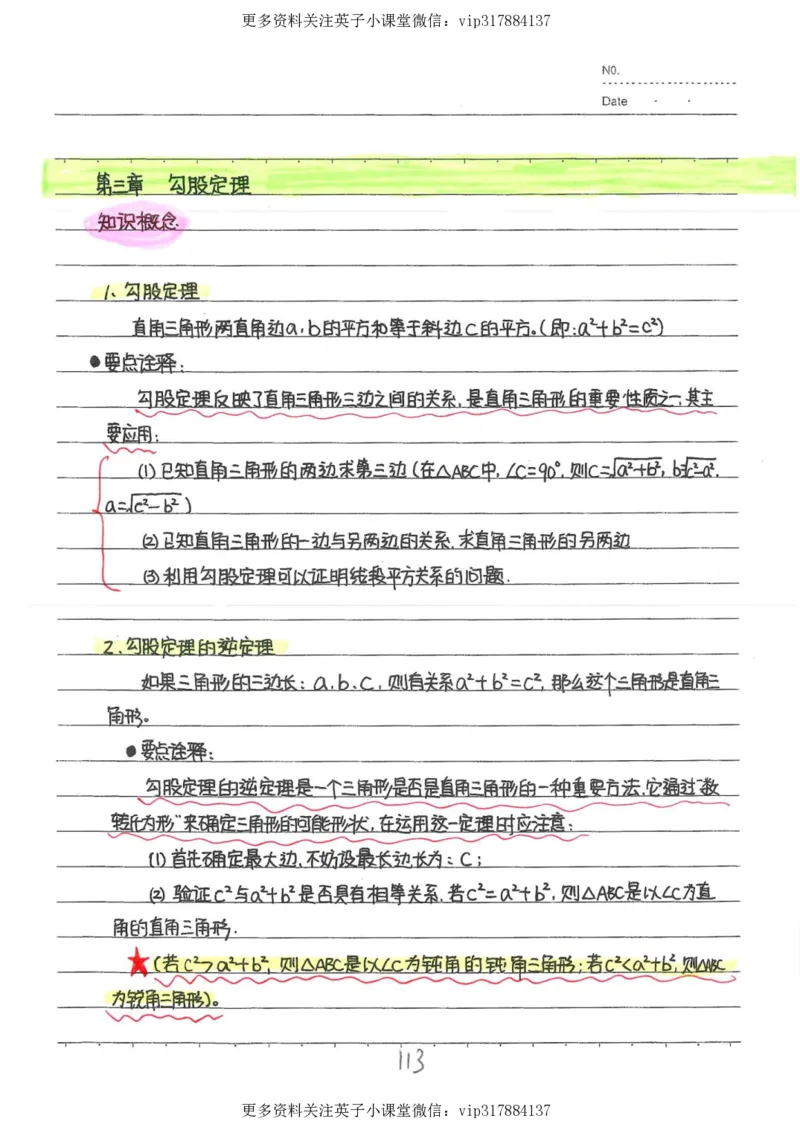 更多资料关注英子小课堂微信：vip317884137
N0.
Date · ·
第三章 勾股定理
知识概念
1、勾股定理
直角三角形两直角边a，b的平方和等于斜边c的平方。(即：a²+b²=c²)
●要点诠释：
勾股定理反映了直角三角形三边之间的关系，是直角三角形的重要性质之一，其主
要应用：
(1)已知直角三角形的两边求第三边(在△ABC中，∠C=90°，则C=√a²+b²，b=√c²-a²，
a=√c²-b²)
(2)已知直角三角形的一边与另两边的关系，求直角三角形的另两边
(3)利用勾股定理可以证明线段平方关系的问题.
2、勾股定理的逆定理
如果三角形的三边长：a、b、c，则有关系a²+b²=c²，那么这个三角形是直角三
角形。
●要点诠释：
勾股定理的逆定理是一个三角形是否是直角三角形的一种重要方法，它通过"数
转化为形"来确定三角形的可能形状，在运用这一定理时应注意：
(1)首先确定最大边，不妨设最长边长为：C；
(2)验证c²与a²+b²是否具有相等关系，若c²=a²+b²，则△ABC是以∠C为直
角的直角三角形.
★(若c²>a²+b²，则△ABC是以∠C为钝角的钝角三角形；若c²<a²+b²，则△ABC
为锐角三角形)。
113
更多资料关注英子小课堂微信：vip317884137